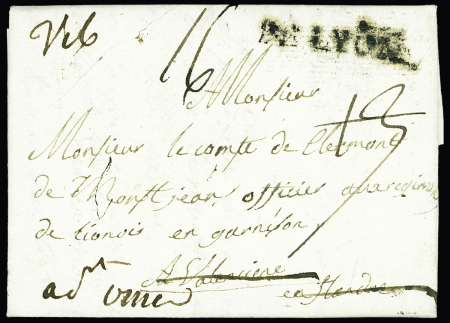 16 DE LYON
A Monsieur
Monsieur le comte de Clermont
de Montjean officier au regiment
de lionois en garnison
A Valencienne
en flandre